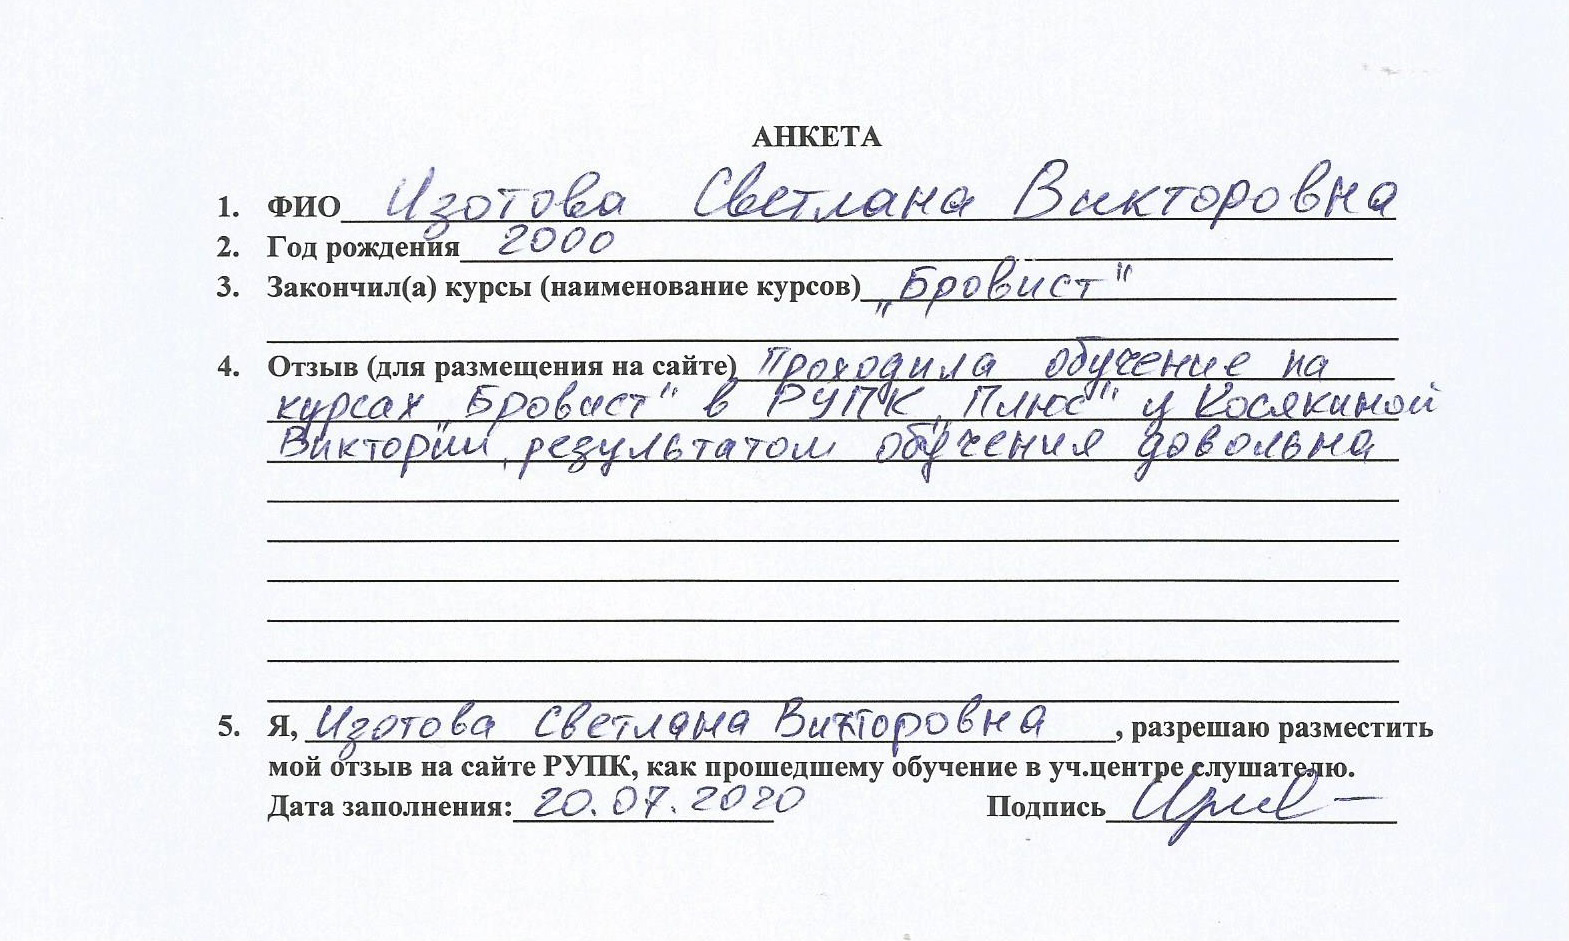 АНКЕТА
1. ФИО Изотова Светлана Викторовна
2. Год рождения 2000
3. Закончил(а) курсы (наименование курсов) „Бровист"
4. Отзыв (для размещения на сайте) Проходила обучение на
курсах „Бровист" в РУПК „Плюс" у Косякиной
Виктории, результатом обучения довольна
5. Я, Изотова Светлана Викторовна, разрешаю разместить
мой отзыв на сайте РУПК, как прошедшему обучение в уч.центре слушателю.
Дата заполнения: 20.07.2020 Подпись